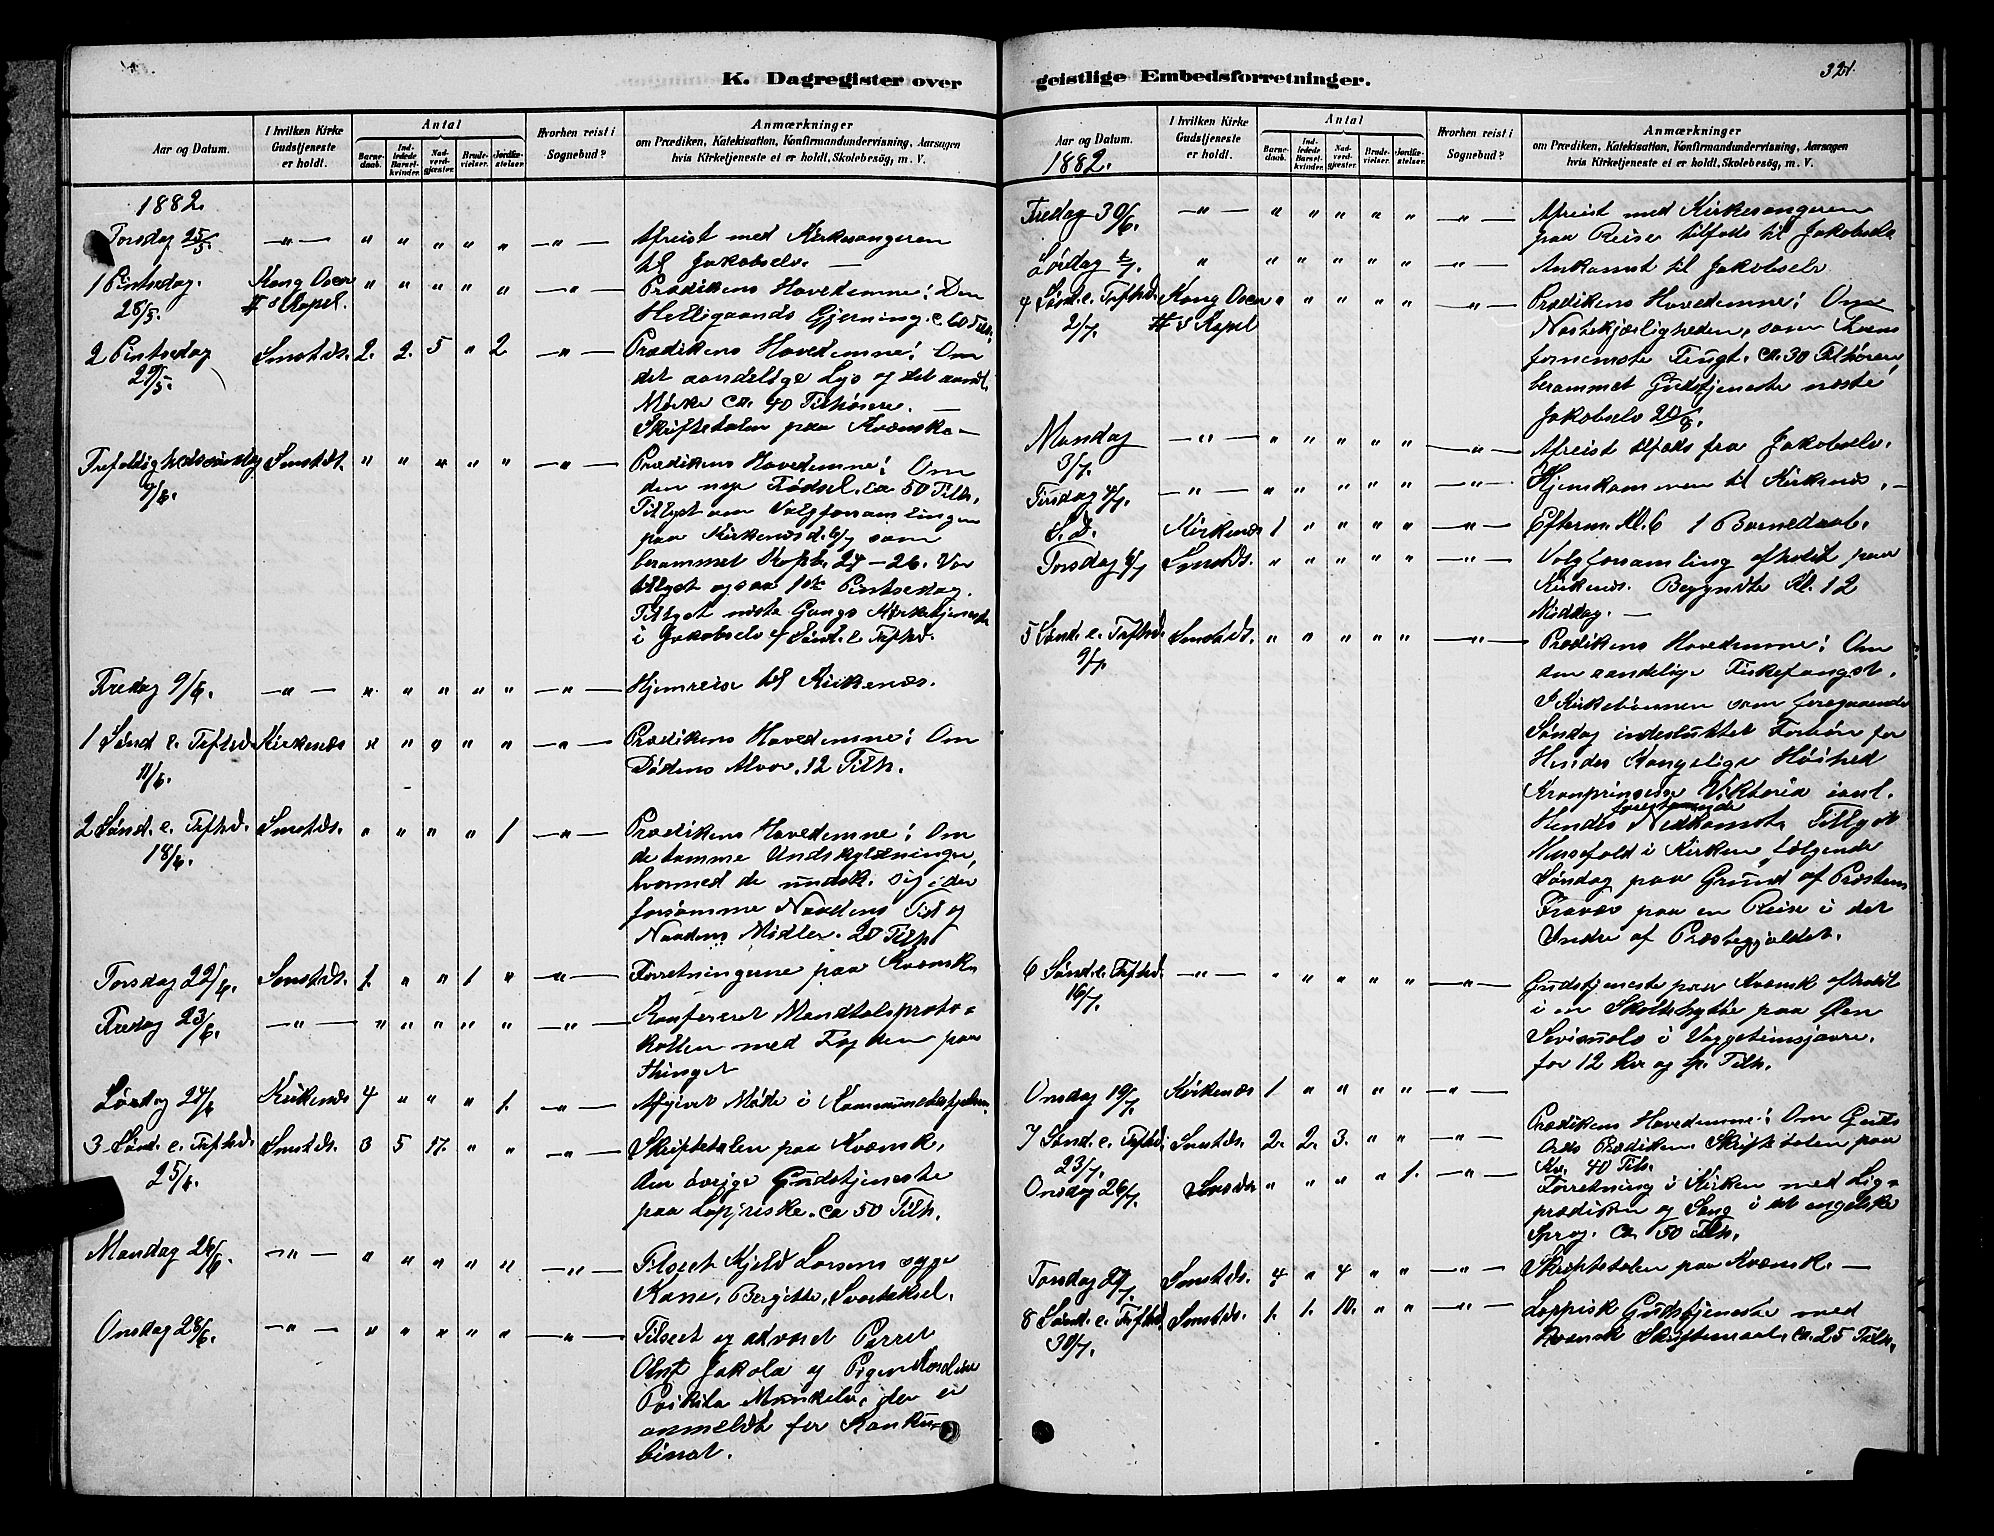 K. Dagregister over
Aar og Datum.
I hvilken Kirke Gudstjeneste er holdt.
Antal
Barnedaab.
Indledede Barselkvinder.
Nadverdgjæster.
Brudevielser.
Jordfæstelser.
Hvorhen reist i Sognebud?
Anmærkninger
om Prædiken, Katekisation, Konfirmandundervisning, Aarsagen
hvis Kirketjeneste ei er holdt, Skolebesög, m. V.
1882.
Torsdag 25/5. — " — " " " " " — " — Afreist med Kirkesangeren
til Jakobselv. —
1 Pintsedag. Kong Oscar " " " " " — " — Prædikens Hovedemne: Den
28/5. II's Kapel. Helligaands Gjerning. c. 60 Tilh.
2 Pintsedag Smstds. 2. 2. 5 " 2 — " — Prædikens Hovedemne: Om
29/5. det aandelige Lys og det aandl.
Mørke ca. 40 Tilhörere. —
Skriftetalen paa Kvænsk. —
Trefoldighedssøndag Smstds. " " " " " — " — Prædikens Hovedemne: Om
4/6. den nye Fødsel. ca 50 Tilh.
Tillyst om Valgforsamlingen
paa Kirkenæs d. 6/7 som
berammet Kapt. 24 — 26. Var
tillyst ogsaa 1ste Pintsedag.
Tillyst næste Gangs Kirketjeneste
i Jakobselv 4 Sønd. e. Trefhd.
Fredag 9/6. — " — " " " " " — " — Hjemreise til Kirkenæs.
1 Sønd e. Trefhd. Kirkenæs " " " " " — " — Prædikens Hovedemne: Om
11/6. Dødens Alvor. 12 Tilh.
2 Sønd. e. Trefhd. Smstds. " " " " 1 — " — Prædikens Hovedemne: Om
18/6. de tomme Undskyldninger,
hvormed de undsk. sig, der
forsømme Naadens Tid og
Naadens Midler. 20 Tilh.
Torsdag 22/6. Smstds. 1. " " 1 " — " — Forretningerne paa Kvænsk
Fredag 23/6. — " — " " " " " — " — Konfereret Mandtalsproto-
kollen med Fogden paa
Thinget
Lørdag 24/6 Kirkenæs 4 " " " 1. — " — Afgivet Møde i Kommunebestyrelsen.
3 Sønd. e. Trefhd. Smstds. 3 5 17. " " — " — Skriftetalen paa Kvænsk.
25/6. den øvrige Gudstjeneste
paa Lappiske. ca 50 Tilh.
Mandag 26/6. — " — " " " " " — " — Tilseet Kjeld Larsens syge
Kone, Bergitte, Svartaksel.
Onsdag 28/6. — " — " " " " " — " — Tilseet og advaret Parret
Olaf Jakola og Pigen
Munkelv, der er
anmeldt for Konku-
binat.
geistlige Embedsforretninger.
321.
Aar og Datum.
1882.
I hvilken Kirke Gudstjeneste er holdt.
Antal
Barnedaab.
Indledede Barselkvinder.
Nadverdgjæster.
Brudevielser.
Jordfæstelser.
Hvorhen reist i Sognebud?
Anmærkninger
om Prædiken, Katekisation, Konfirmandundervisning, Aarsagen
hvis Kirketjeneste ei er holdt, Skolebesög, m. V.
Fredag 30/6. — " — " " " " " — " — Afreist med Kirkesangeren
paa Reise tilfods til Jakobselv
Lördag 1/7. " " " " " " — " — Ankomst til Jakobselv
4 Sønd. e. Trefhd. Kong Oscar " " " " " — " — Prædikens Hovedemne: Om
2/7. II's Kapel Næstekjærligheden, som Troens
fornemste Frugt. ca. 30 Tilhørere,
berammet Gudstjeneste næste i
Jakobselv 20/8.
Mandag — " — " " " " " — " — Afreist tilfods fra Jakobselv.
3/7.
Tirsdag 4/7. — " — " " " " " — " — Hjemkommen til Kirkenæs. —
S.D. Kirkenæs 1 " " " " — " — Efterm. Kl. 6 1 Barnedaab.
Torsdag 6/7 Smstds. " " " " " — " — Valgforsamling afholdt paa
Kirkenæs. Begyndte Kl. 12
Middag. —
5 Sønd. e. Trefhd. Smstds. " " " " " — " — Prædikens Hovedemne: Om
9/7. den aandelige Fiskefangst.
I Kirkebønnen som foregaaende
Søndag indesluttet Forbøn for
Hendes Kongelige Høihed
Kronprinsesse Viktoria ianl.
forestaaende
Hendes Nedkomst. Tillyst
Messefald i Kirken følgende
Søndag paa Grund af Præstens
Fravær paa en Reise i det
Indre af Præstegjældet.
6 Sønd. e. Trefhd. — " — " " " " " — " — Gudstjeneste paa Kvænsk afholdt
16/7. i en Skoltehytte paa Øen
i Vaggetimsjavre.
for 12 Kv. og Tilh.
Onsdag 19/7. Kirkenæs 1 " " " " — " —
7 Sønd. e. Trefhd. Smstds. 2. 2. 3. " " — " — Prædikens Hovedemne: Om Guds
23/7. Ords Prædiken. Skriftetalen paa
Kv. 40 Tilh.
Onsdag 26/7. Smstds " " " " 1. — " — Forretning i Kirken med Lig-
prædiken og Sang i det engelske
Sprog. ca 50 Tilh.
Torsdag 27/7. Smstds. 4 " 4 " " — " — Skriftetalen paa Kvænsk. —
8 Sønd. e. Trefhd. Smstds. 1. 1. 10. " " — " — Lappisk Gudstjeneste med
30/7. Kvænsk Skriftemaal. ca. 25 Tilh.